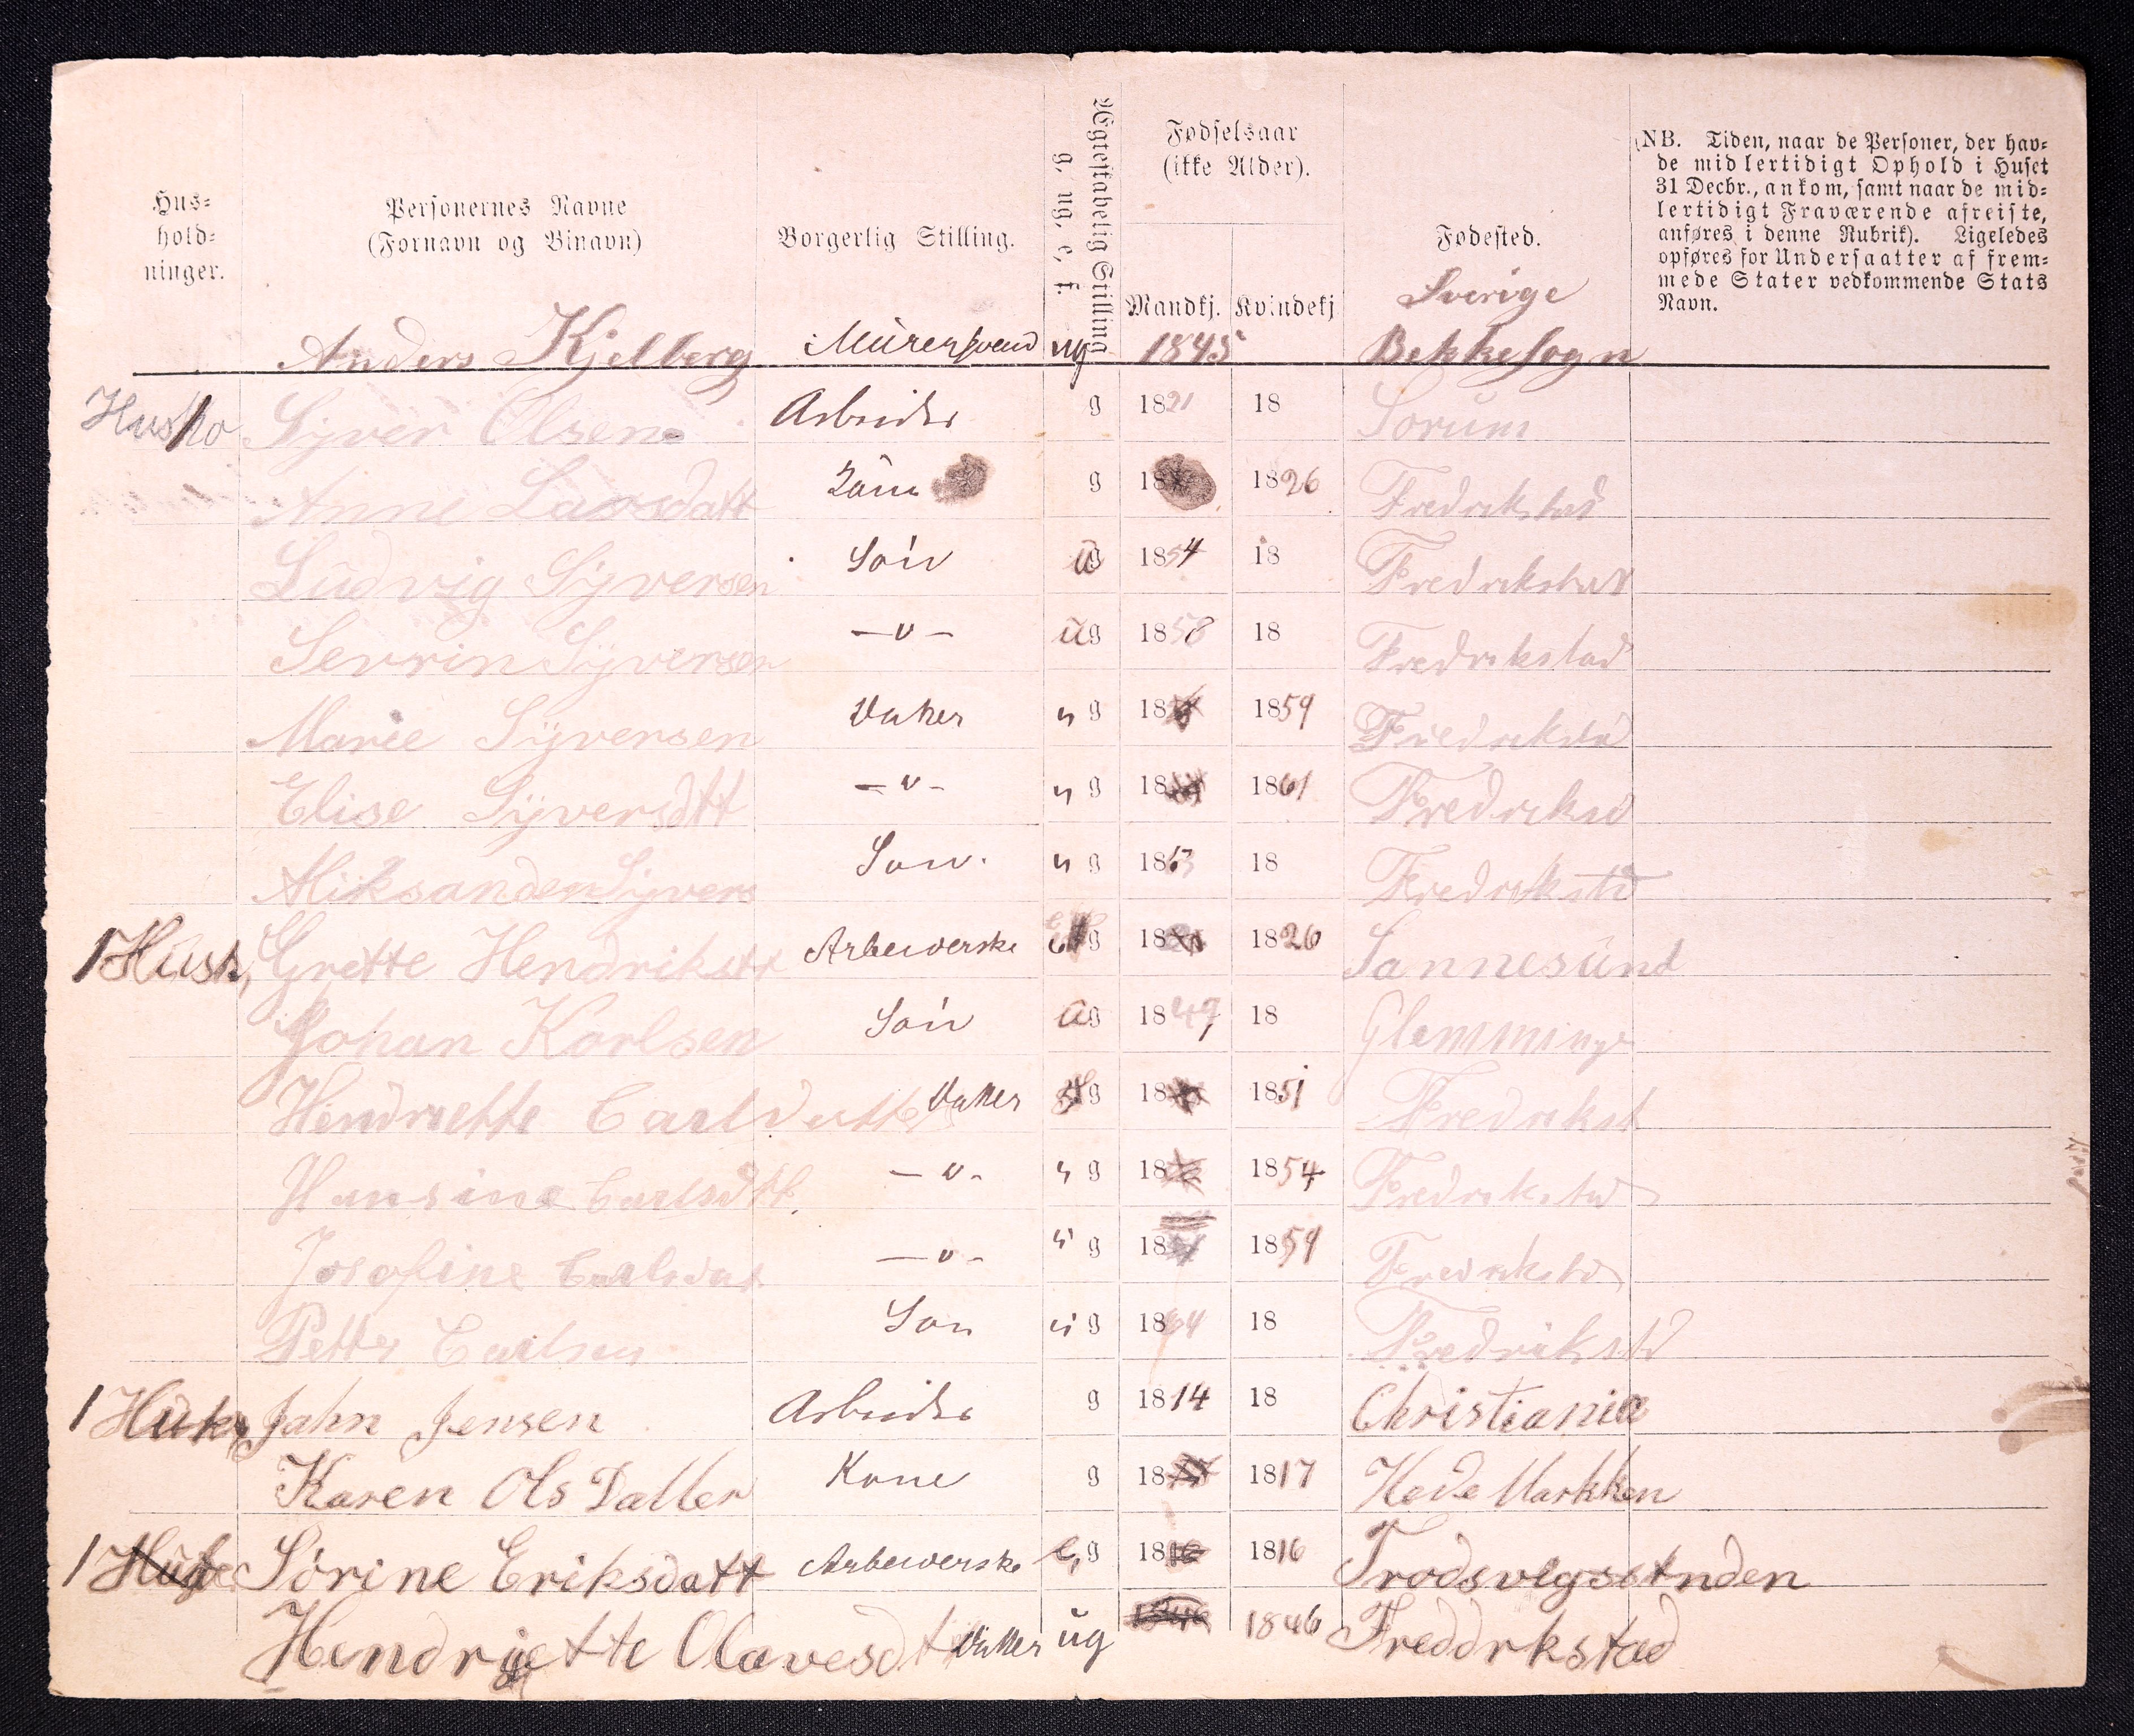 Hus=
hold=
ninger.
Personernes Navne
(Fornavn og Binavn)
Borgerlig Stilling.
Ægteskabelig Stilling
g. ug. e. f.
Fødselsaar
(ikke Alder).
Mandkj. Kvindekj
Fødested.
NB. Tiden, naar de Personer, der hav=
de midlertidigt Ophold i Huset
31 Decbr., ankom, samt naar de mid=
lertidigt Fraværende afreiste,
anføres i denne Rubrik). Ligeledes
opføres for Undersaatter af frem=
mede Stater vedkommende Stats
Navn.
Sverige
Anders Kjelberg Murersvend ug 1845 Bekkesogn
Syver Olsen Arbeider g 1821 18 Sorum
Anne Larsdatt g 18 1826 Fredrikstad
Ludvig Syversen Søn ug 1854 18 Fredrikstad
Sevrin Syversen —"— ug 1858 18 Fredrikstad
Marie Syversen Datter ug 18 1859 Fredrikstd
Elise Syversdtt —"— ug 18 1861 Fredriksd
Aliksander Syvers Søn ug 1863 18 Fredrikstd
1 Hush, Grette Hendriksdtt Arbeiderske g 18 1826 Sannesund
Johan Karlsen Søn ug 1849 18 Glemminge
Hendriette Carlsdatter Datter g 18 1851 Fredrikst
Hansine Carlsdtt. —"— ug 18 1854 Fredrikstad
Josefine Carlsdat —"— ug 18 1859 Fredrikstd
Petter Carlsen Søn ug 1864 18 Fredrikstd
1 Jahn Jensen Arbeider g 1814 18 Christiania
Karen Ols Datter Kone g 18 1817 Hede Markken
1 Sørine Eriksdatt Arbeiderske e, g 18 1816
Hendriette Olavesdt Datter ug 1846 Freddrkstad